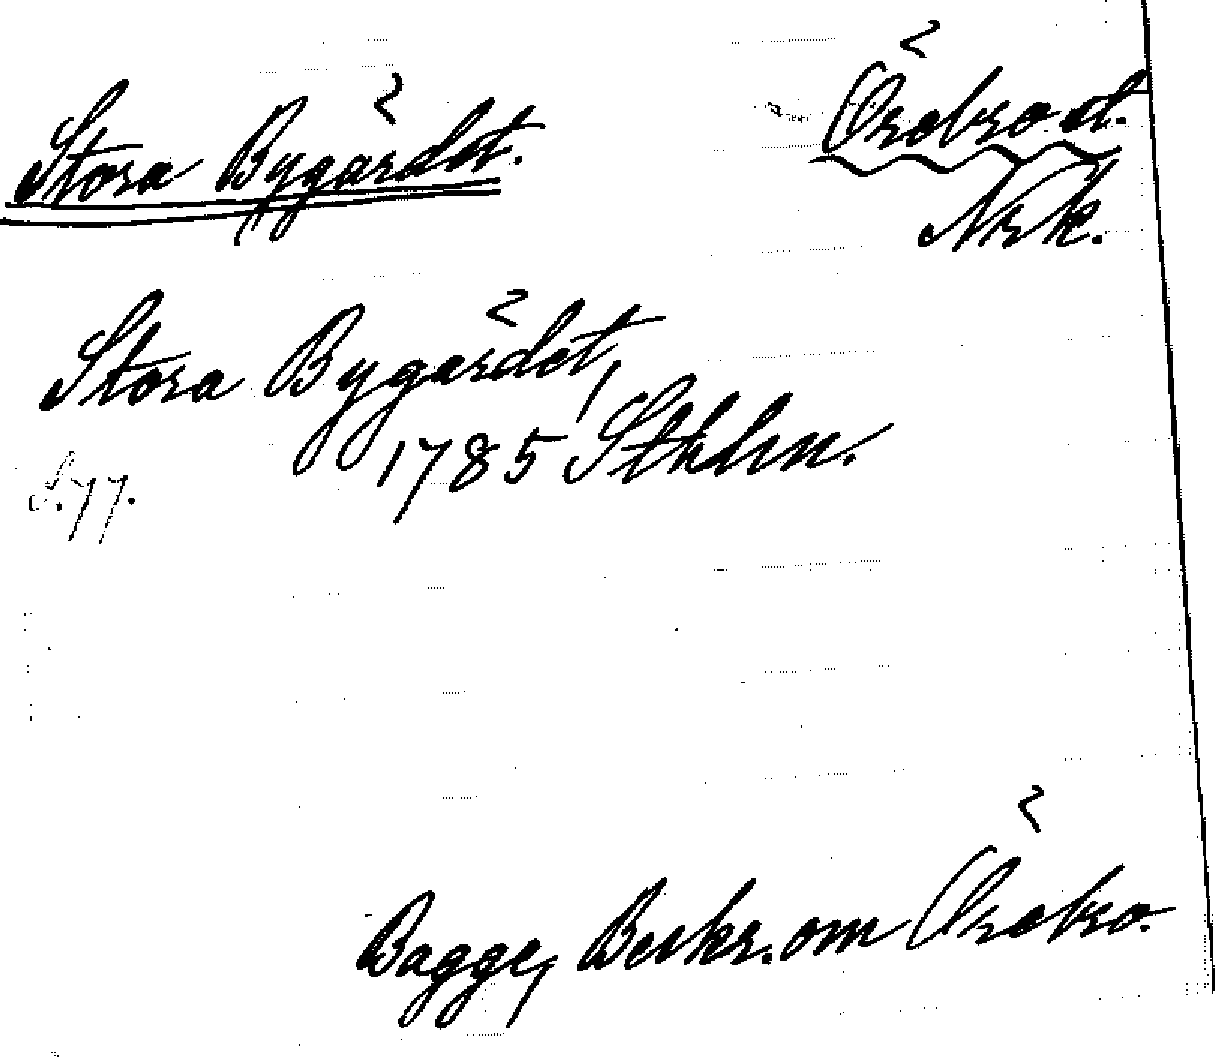 Stora Bygärdet. Örebro st.
Nrk.
Stora Bygärdet,
1785 Sthlm.
S. 77.
Bagge, Beskr. om Örebro.